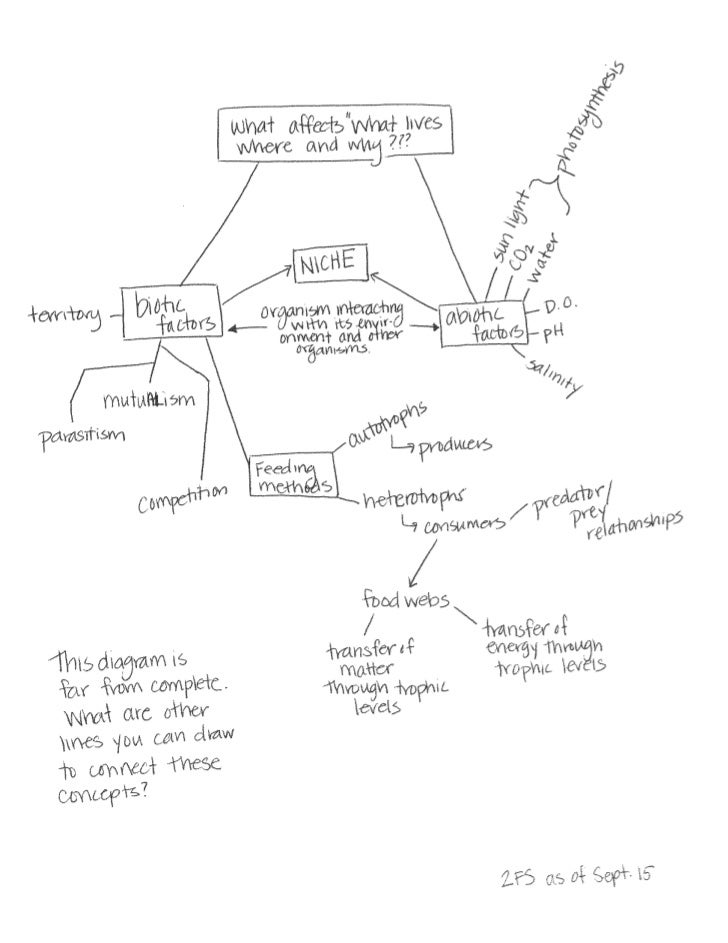 What affects "What lives
where and why???
photosynthesis
sun light
CO2
water
NICHE
territory
biotic
factors
organism interacting
with its envir-
onment and other
organisms.
abiotic
factors
D.O.
pH
salinity
mutuALism
parasitism
competition
Feeding
methods
autotrophs
producers
heterotrophs
consumers
predator/
prey
relationships
food webs
transfer of
matter
through trophic
levels
transfer of
energy through
trophic levels
This diagram is
far from complete.
What are other
lines you can draw
to connect these
concepts?
2FS as of Sept. 15